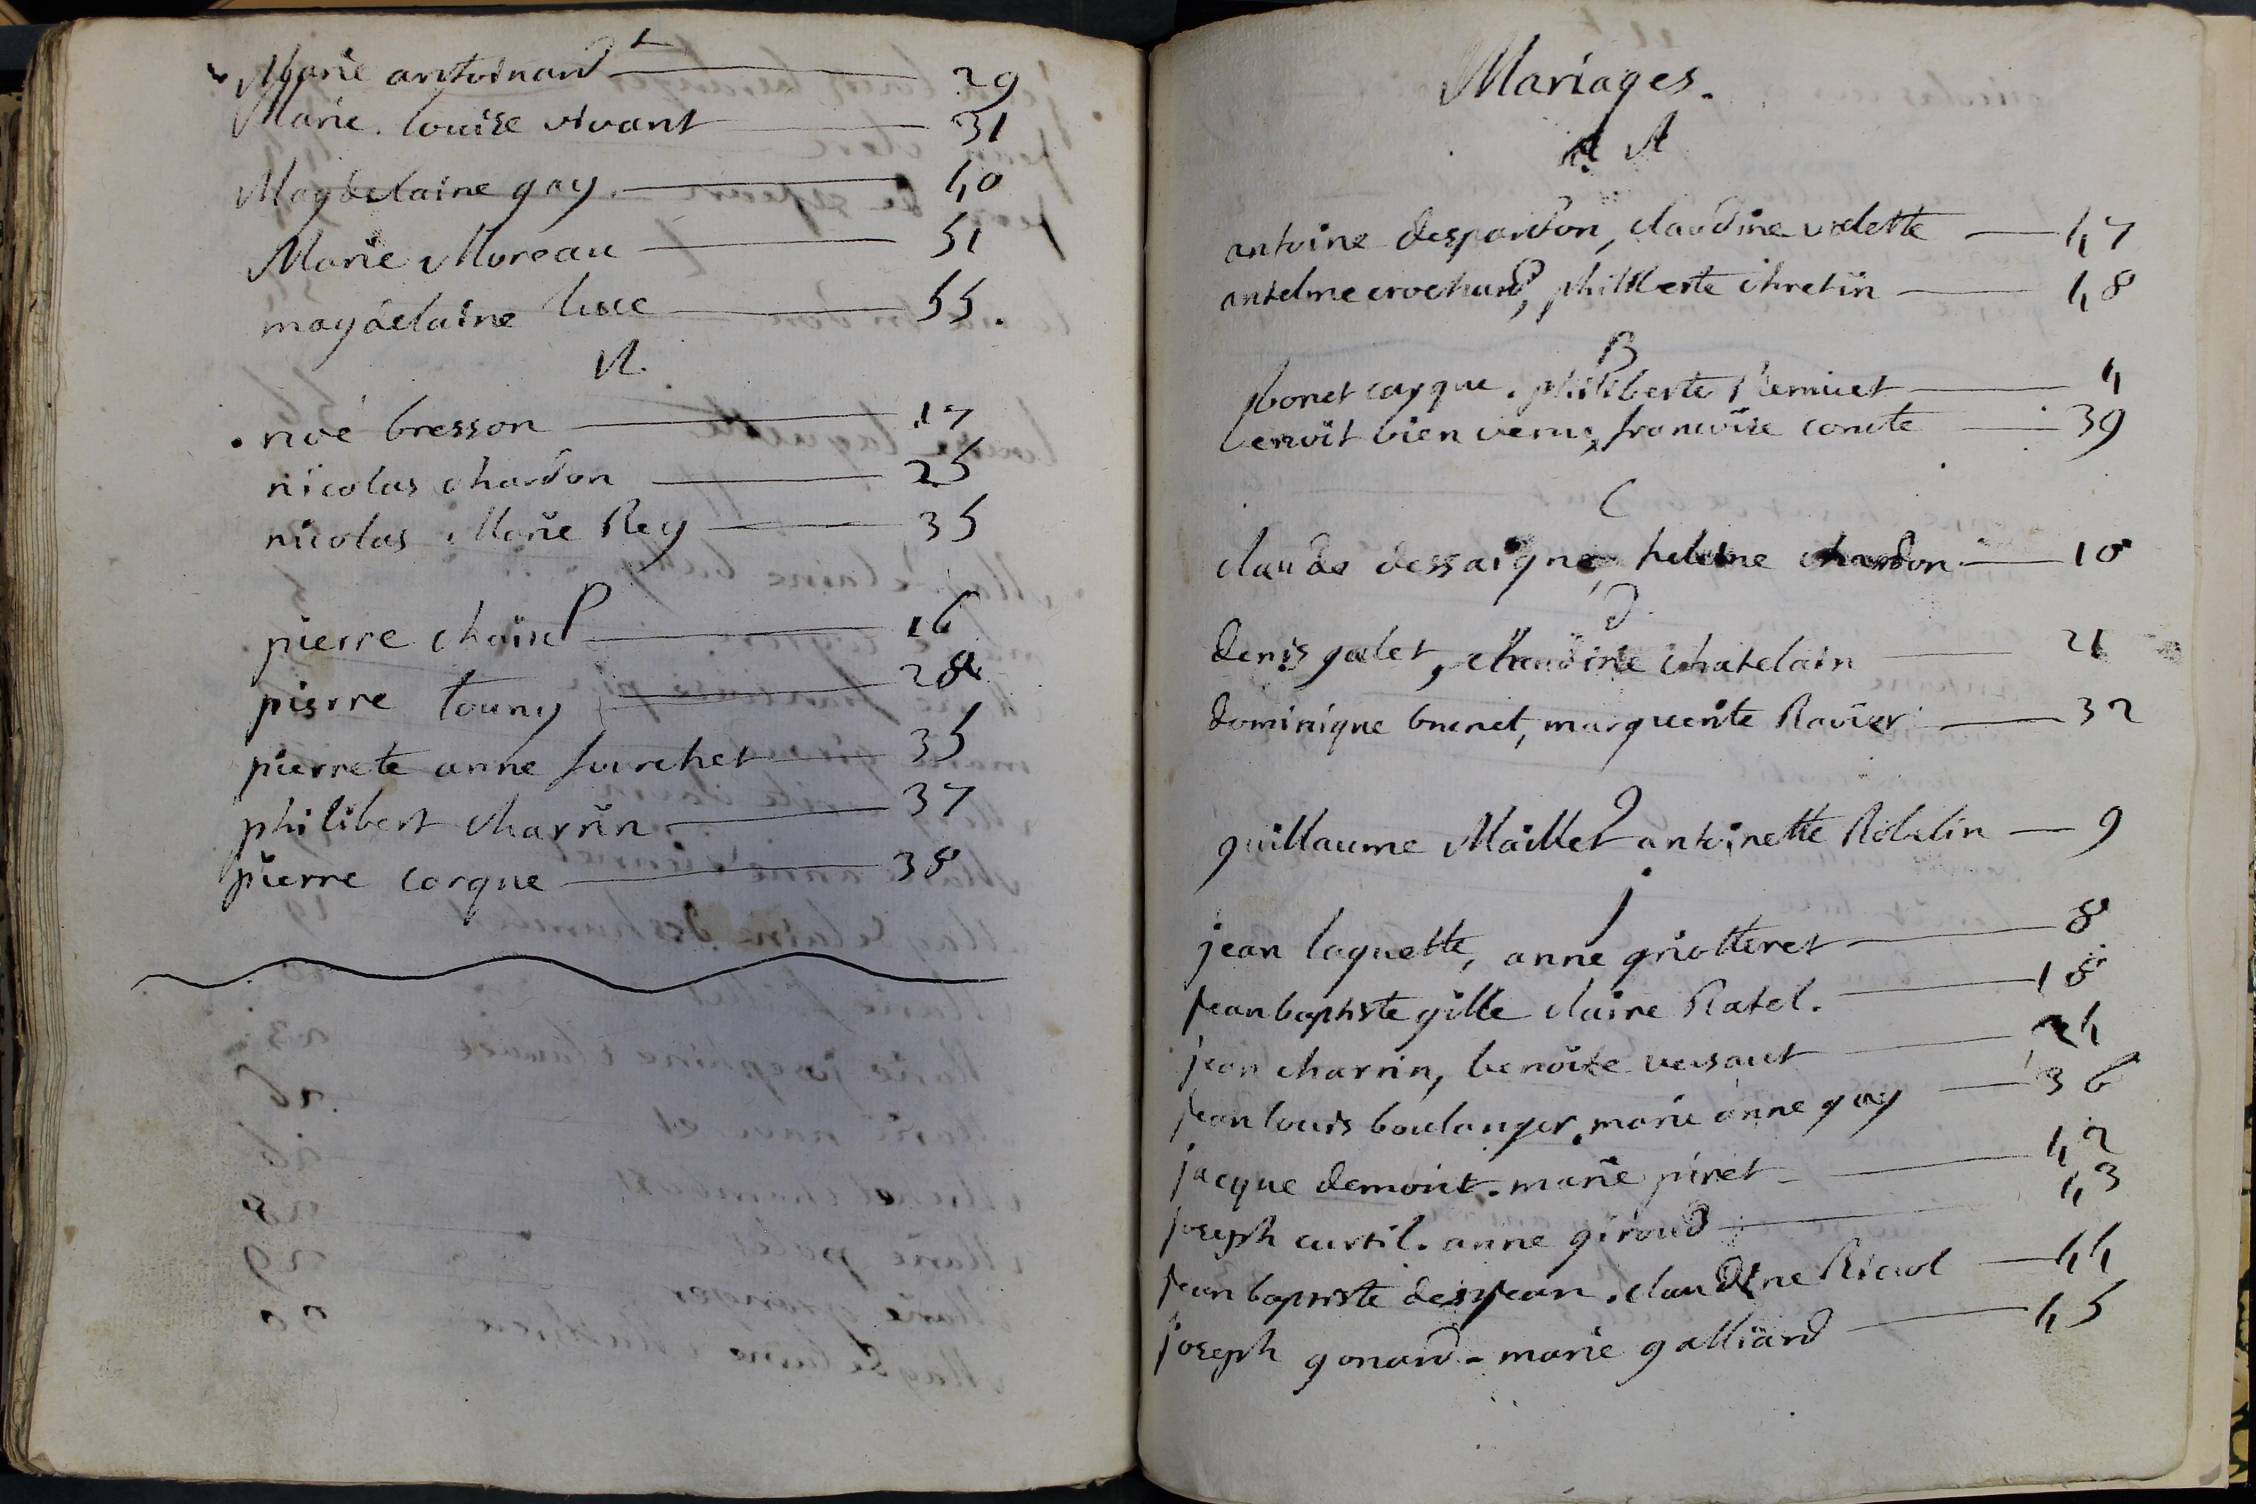 Marie antoinard 29
Marie. louise vivant 31
Magdelaine gay. 40
Marie Moreau 51
magdelaine luce 55.
N.
noé bresson 17
nicolas chardon 25
nicolas Marie Rey 35
P
pierre chain 16
pierre touny 28
pierrete anne furchet 35
philibert charrin 37
pierre corque 38
Mariages.
A
antoine despardon, claudine violette 47
antelme crochard, philiberte chretin 48
B
bonet carque. philiberte 4
benoit bienvenu, francoise comte 39
C
claude dessaigne, helene chardon 10
D.
denis galet, claudine chatelain 21
dominique brunet, marguerite Ravier 32
G
guillaume Maillet antoinette Robelin 9
j
jean laquette, anne griotteret 8
jean baptiste gille claire Ratel. 18
jean charrin, benoite versaut 24
jean louis boulanger, marie anne gay 36
jacque demont. marie piret 42
joseph curtil. anne giroud 43
jean baptiste desjean. claudine Ricol 44
joseph gonard - marie galliard 45